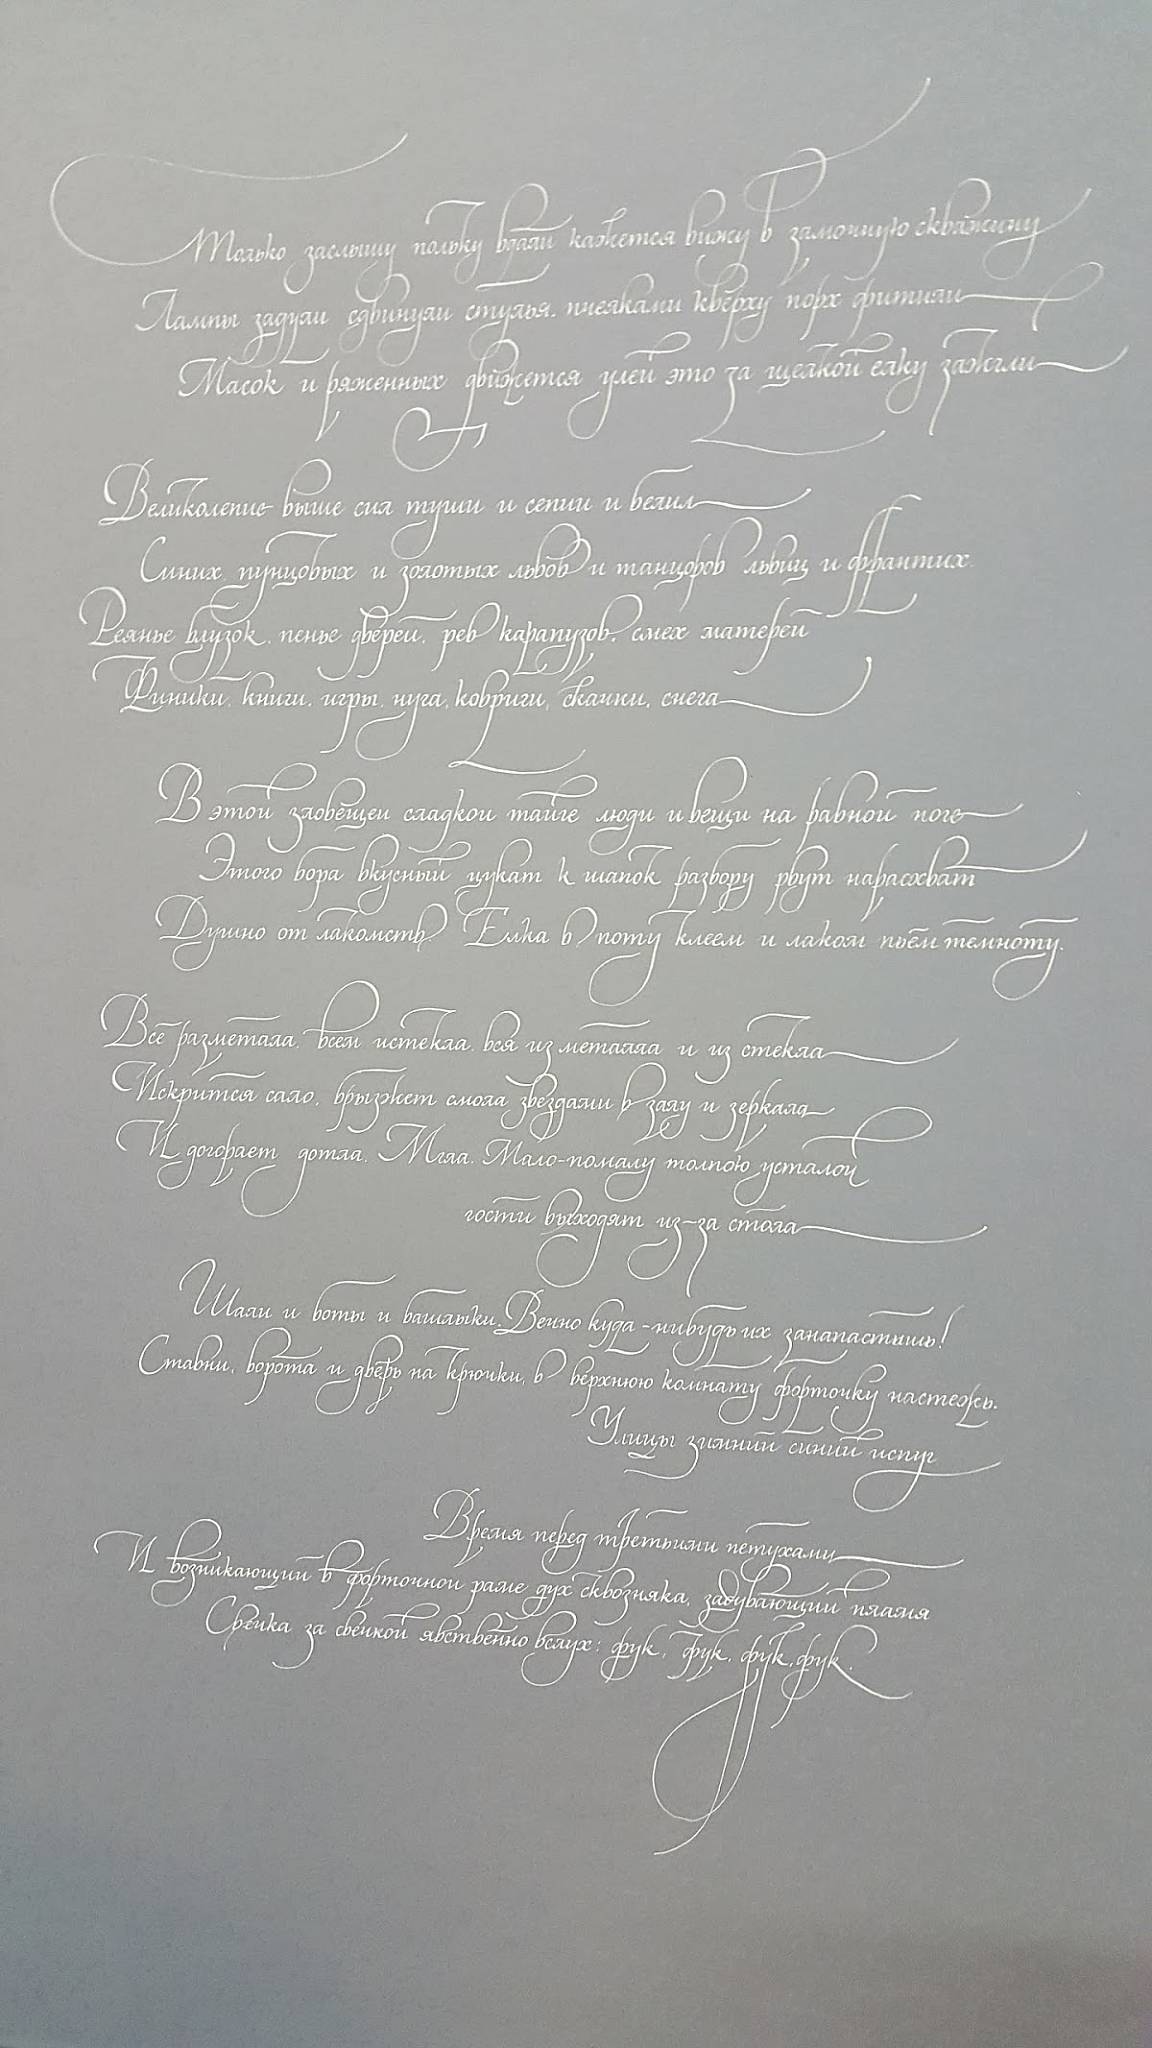 Только заслышу польку вдали кажется вижу в замочную скважину
Лампы задули сдвинули стулья. пчелками кверху порх фитили
Масок и ряженных движется улей это за щелкой елку зажгли
Великолепие выше сил туши и сепии и белил
Синих пунцовых и золотых львов и танцоров львиц и франтих.
Реянье блузок. пенье дверей. рев карапузов. смех матерей
Финики. книги. игры. нуга. ковриги. скачки. снега
В этой зловещей сладкой тайге люди и вещи на равной ноге
Этого бора вкусный цукат к шапок разбору рвут нарасхват
Душно от лакомств Елка в поту клеем и лаком пьем темноту.
Все разметала. всем истекла. вся из металла и из стекла
Искрится сало. брызжет смола звездами в залу и зеркала
И догорает дотла. Мгла. Мало-помалу толпою усталой
гости выходят из-за стола
Шали и боты и башлыки. Вечно куда-нибудь их занапастишь!
Ставни. ворота и дверь на крючки. в верхнюю комнату форточку настежь.
Улицы зимний синий испуг
Время перед третьими петухами
И возникающий в форточной раме дух сквозняка. задувающий пламя
Свечка за свечкой явственно вслух: фук. фук. фук. фук.